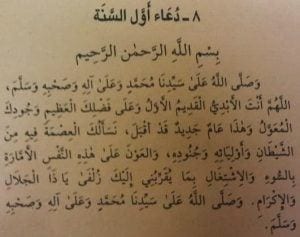 ٨ - دُعَاء أَوَّلِ السَّنَة
بِسْمِ اللَّهِ الرَّحْمٰنِ الرَّحِيمِ
وَصَلَّى اللَّهُ عَلَى سَيِّدِنَا مُحَمَّدٍ وَعَلَىٰ آلِهِ وَصَحْبِهِ وَسَلَّمَ،
اللَّهُمَّ أَنْتَ الْأَبَدِيُّ الْقَدِيمُ الْأَوَّلُ وَعَلَىٰ فَضْلِكَ الْعَظِيمِ وَجُودِكَ
الْمُعَوَّلُ وَهٰذَا عَامٌ جَدِيدٌ قَدْ أَقْبَلَ، نَسْأَلُكَ الْعِصْمَةَ فِيهِ مِنَ
الشَّيْطَانِ وَأَوْلِيَائِهِ وَجُنُودِهِ، وَالْعَوْنَ عَلَىٰ هٰذِهِ النَّفْسِ الْأَمَّارَةِ
بِالسُّوءِ وَالْاِشْتِغَالِ بِمَا يُقَرِّبُنِي إِلَيْكَ زُلْفَىٰ يَا ذَا الْجَلَالِ
وَالْإِكْرَامِ. وَصَلَّى اللَّهُ عَلَىٰ سَيِّدِنَا مُحَمَّدٍ وَعَلَىٰ آلِهِ وَصَحْبِهِ
وَسَلَّمَ.